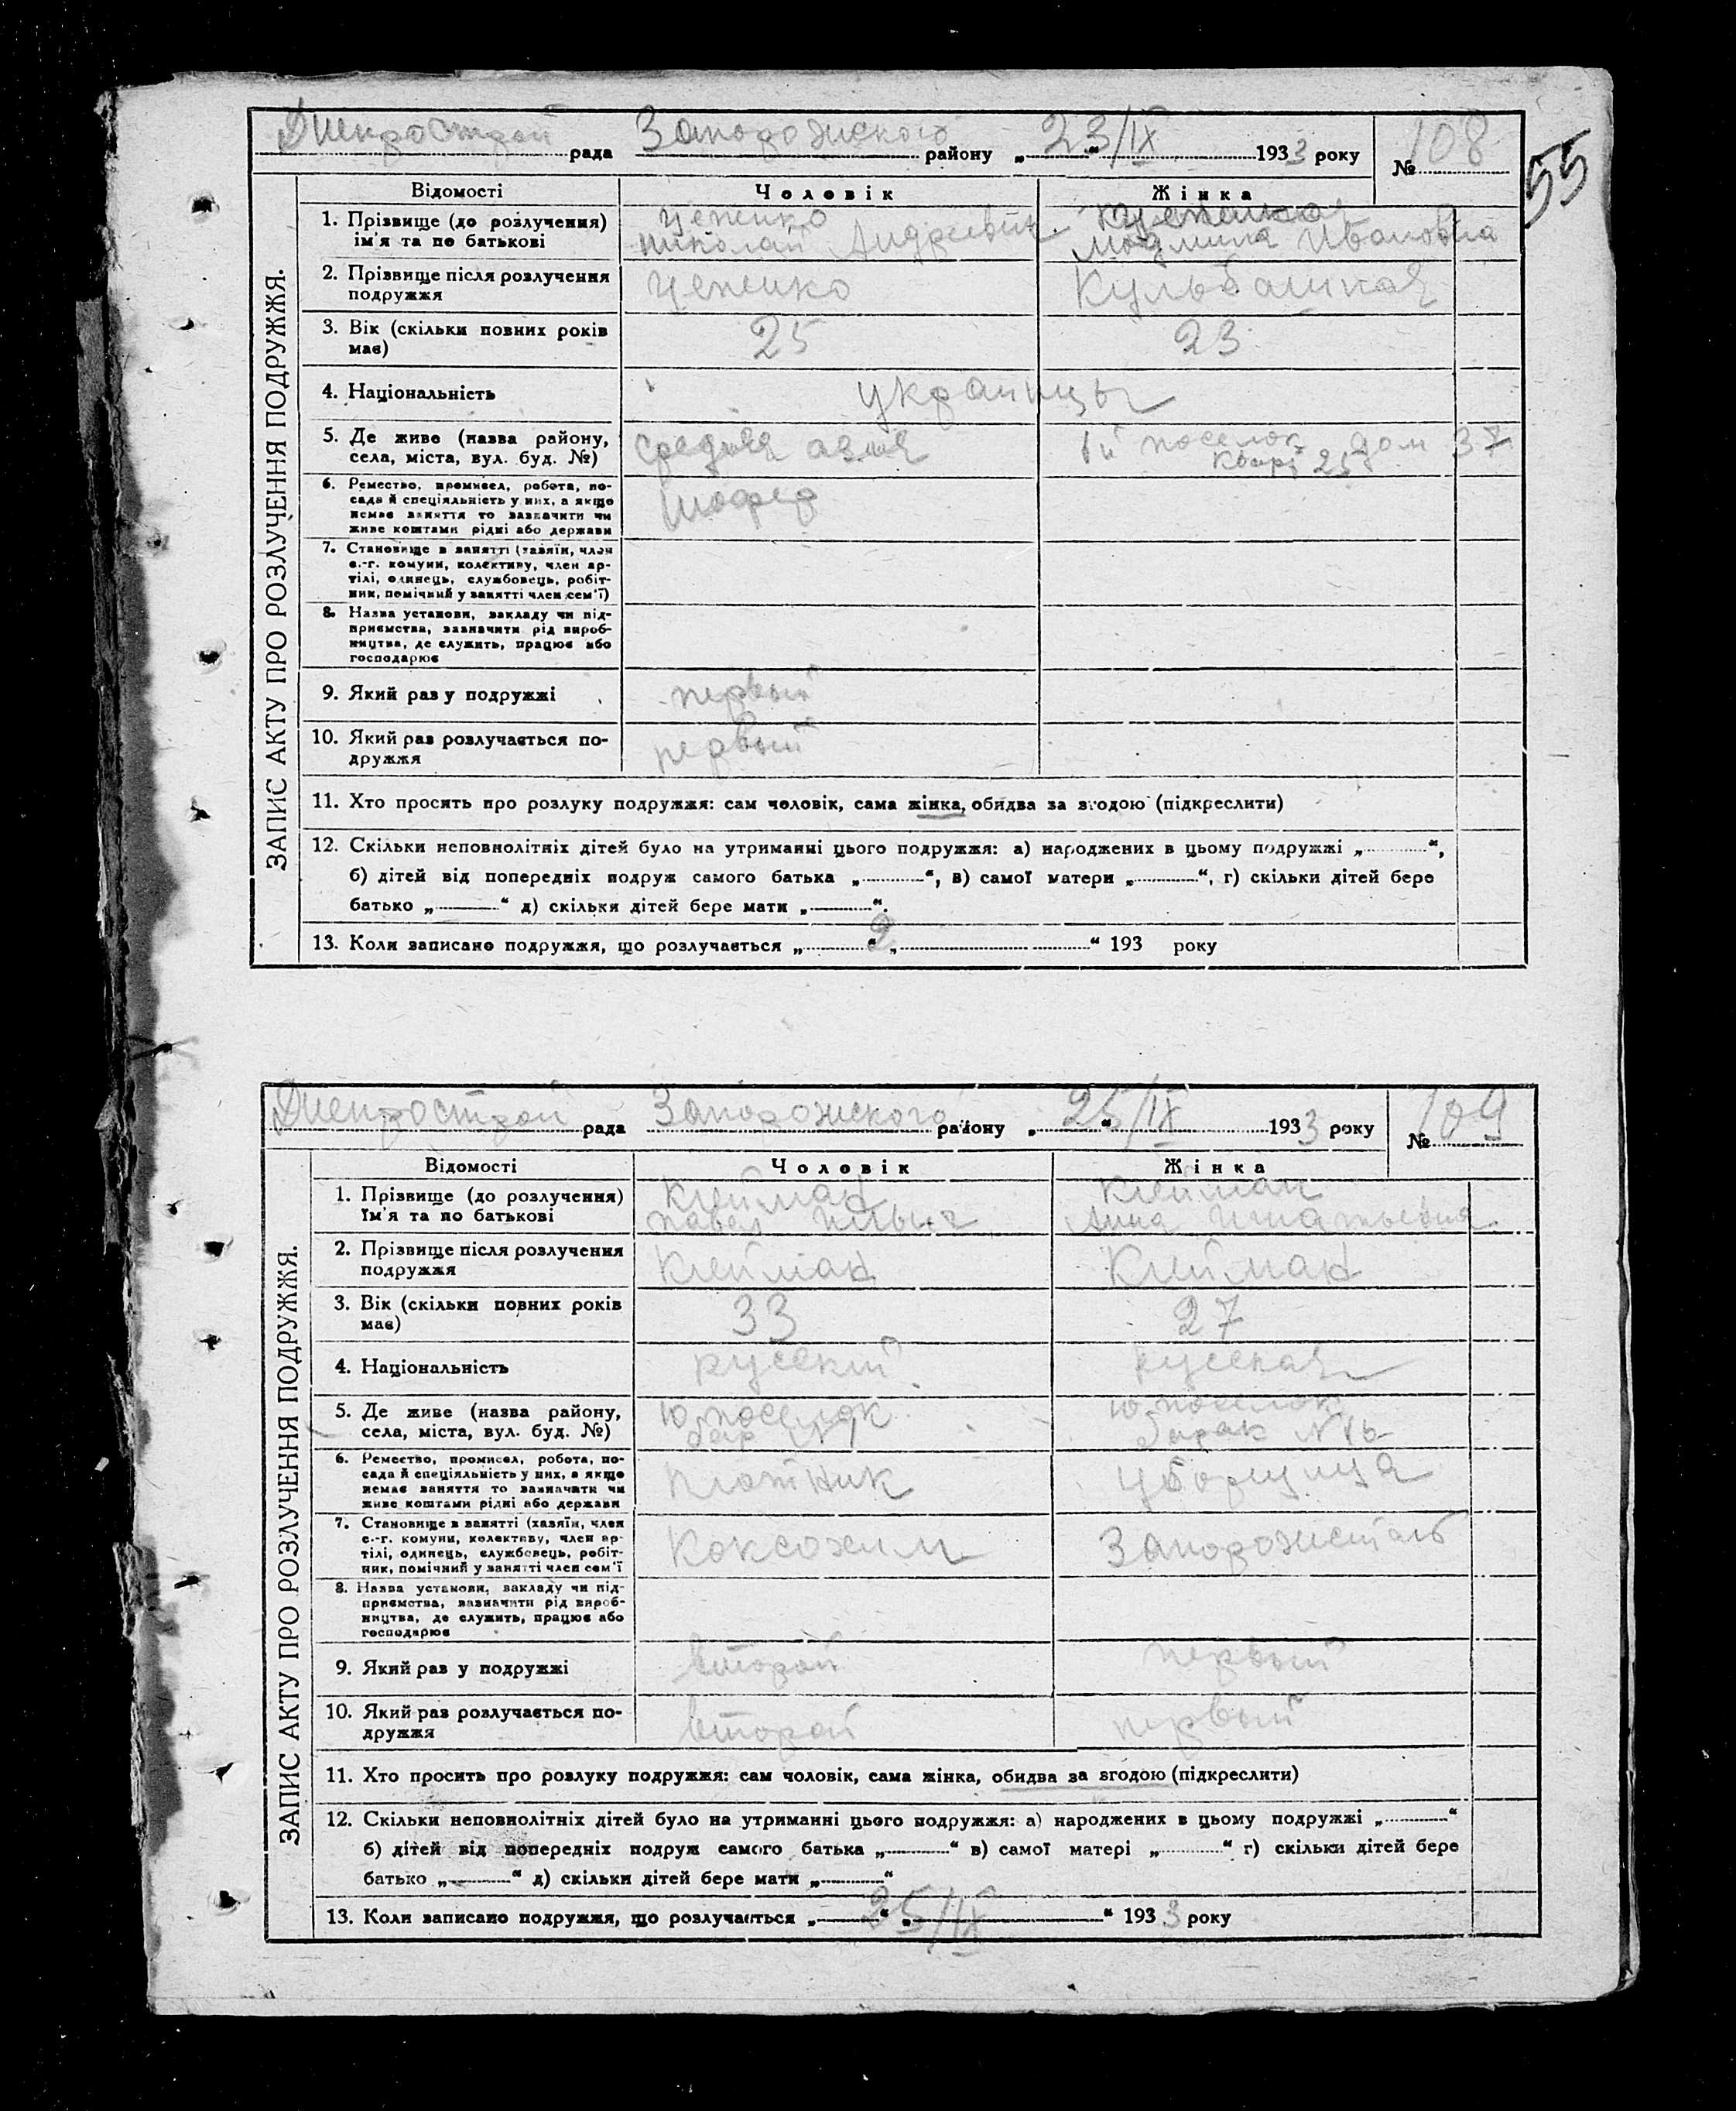 Днепрострой рада Запорожского району „23“/IX 1933 року № 108
55
ЗАПИС АКТУ ПРО РОЗЛУЧЕННЯ ПОДРУЖЖЯ.
Відомості Чоловік Жінка
1. Прізвище (до розлучення) ім'я та по батькові
Цепенко
Николай Андреевич
Людмила Ивановна
2. Прізвище після розлучення подружжя
Цепенко Кульбашная
3. Вік (скільки повних років має)
25 23
4. Національність
украинцы
5. Де живе (назва району, села, міста, вул. буд. №)
средняя азия
1й поселок дом 37
кварт 25
6. Ремество, промисел, робота, посада й спеціяльність у них, а якщо немає заняття то зазначити чи живе коштами рідні або держави
шофер
7. Становище в занятті (хазяїн, член с.-г. комуни, колективу, член артілі, одинець, службовець, робітник, помічний у занятті член сем'ї)
8. Назва установи, закладу чи підприємства, зазначити рід виробництва, де служить, працює або господарює
9. Який раз у подружжі
первый
10. Який раз розлучається подружжя
первый
11. Хто просить про розлуку подружжя: сам чоловік, сама жінка, обидва за згодою (підкреслити)
12. Скільки неповнолітніх дітей було на утриманні цього подружжя: а) народжених в цьому подружжі „............“,
б) дітей від попередніх подруж самого батька „............“, в) самої матери „............“, г) скільки дітей бере
батько „............“ д) скільки дітей бере мати „............“.
13. Коли записано подружжя, що розлучається „............“ „............“ 193 року
Днепрострой рада Запорожского району „25“/IX 1933 року № 109
ЗАПИС АКТУ ПРО РОЗЛУЧЕННЯ ПОДРУЖЖЯ.
Відомості Чоловік Жінка
1. Прізвище (до розлучення) Ім'я та по батькові
Клейман Клейман
Павел Ильич Анна Игнатьевна
2. Прізвище після розлучення подружжя
Клейман Клейман
3. Вік (скільки повних років має)
33 27
4. Національність
русский русская
5. Де живе (назва району, села, міста, вул. буд. №)
10 поселок 10 поселок
бар №1 барак №
6. Ремество, промисел, робота, посада й спеціяльність у них, а якщо немає заняття то зазначати чи живе коштами рідні або держави
плотник уборщица
7. Становище в занятті (хазяїн, член с.-г. комуни, колективу, член артілі, одинець, службовець, робітник, помічний у занятті член сем'ї
Коксохим Запорожсталь
8. Назва установи, закладу чи підприємства, зазначити рід виробництва, де служить, працює або господарює
9. Який раз у подружжі
второй первый
10. Який раз розлучається подружжя
второй первый
11. Хто просить про розлуку подружжя: сам чоловік, сама жінка, обидва за згодою (підкреслити)
12. Скільки неповнолітніх дітей було на утриманні цього подружжя: а) народжених в цьому подружжі „............“
б) дітей від попередніх подруж самого батька „............“ в) самої матері „............“ г) скільки дітей бере
батько „............“ д) скільки дітей бере мати „............“
13. Коли записано подружжя, що розлучається „25“/IX 1933 року